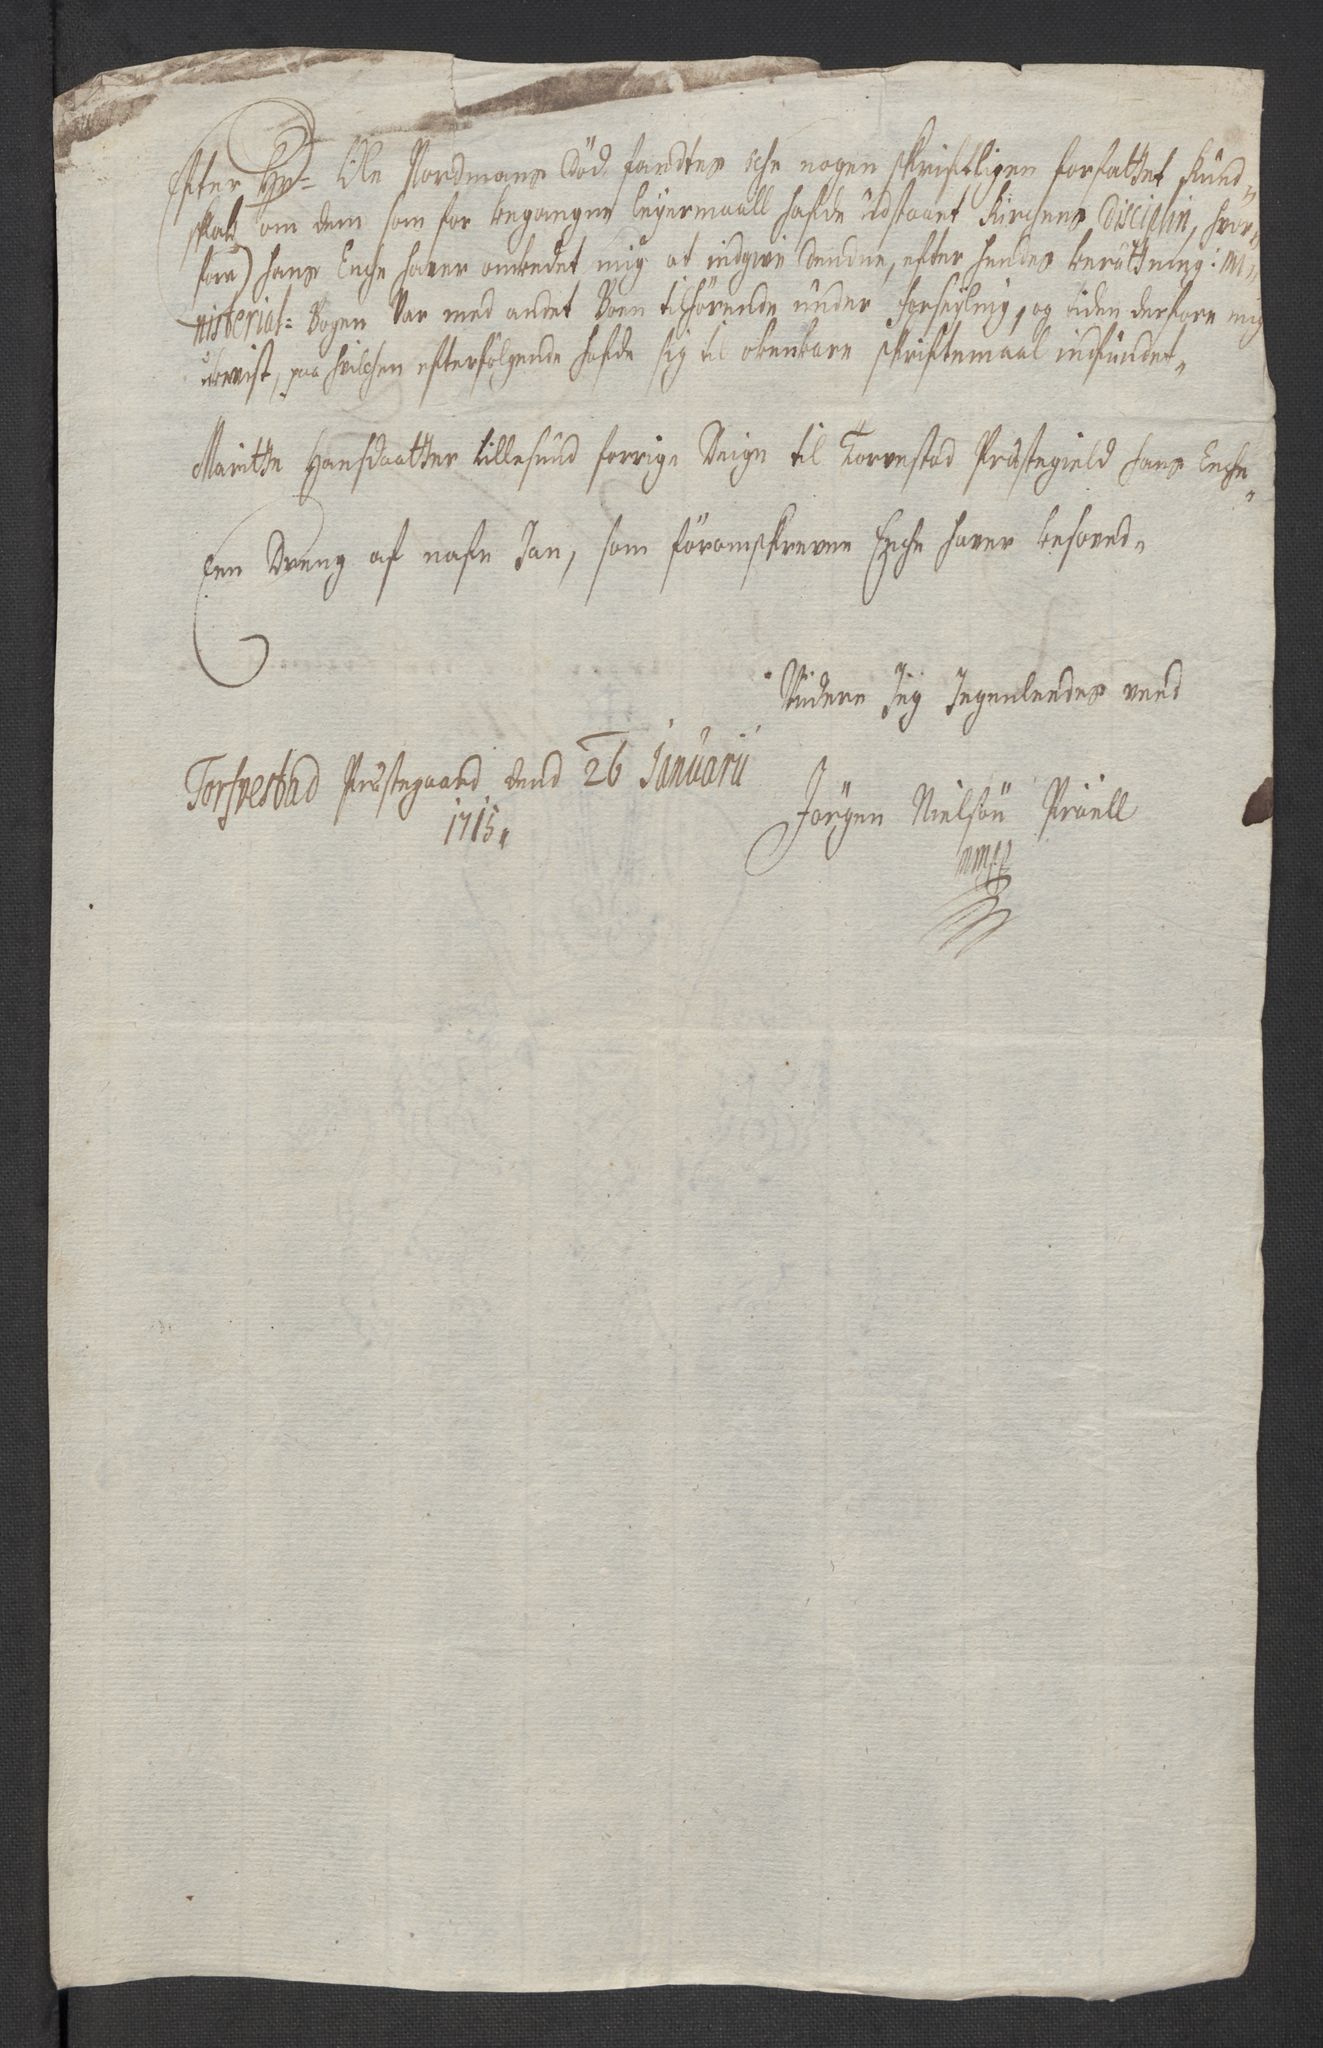 Efter Hr= Ole Nordmans Död fandtes iche nogen skriftligen forfattet Künd=
skab om dem som for begangne leyermaall hafde üdstaaet Kirchens Disciplin, hvor=
fore) hans Enche haver ombedet mig at indgive dendne, efter hendes berättning: Mi=
nisterial= Bogen Var med andet Boen tilhörende ünder forseigling, og tiden derfore mig
übevist, paa hvilchen efterfölgende hafde sig til obenbare skriftemaal indfündet„
Maritte Hansdaatter Lillesünd forrige Deign til Torvestad Præstegield hans Enche„
Een Dreng af nafn Jan, som föromskrevne Enche haver besoved„
Videre Jeg Ingenleedes veed
Torfvestad Præstegaard dend 26 Januarii
1715„
Jörgen Nielsön Prüell
mmpp